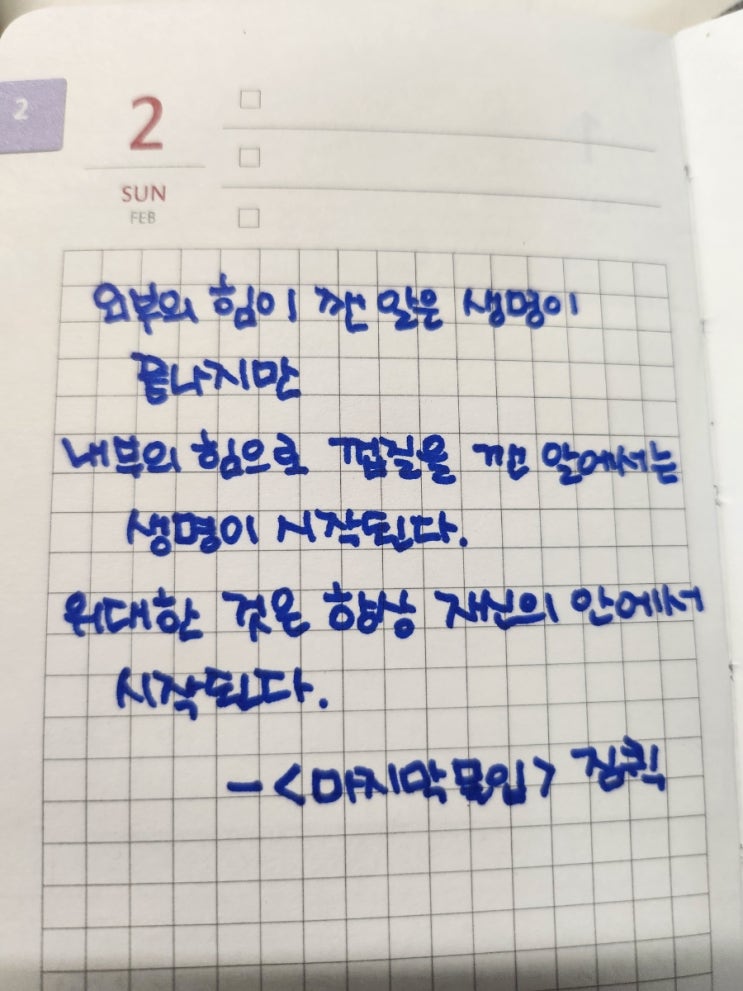 2
2
SUN
FEB
외부의 힘이 깬 알은 생명이
끝나지만
내부의 힘으로 껍질을 깬 알에서는
생명이 시작된다.
위대한 것은 항상 자신의 안에서
시작된다.
-<마지막몰입> 짐퀵